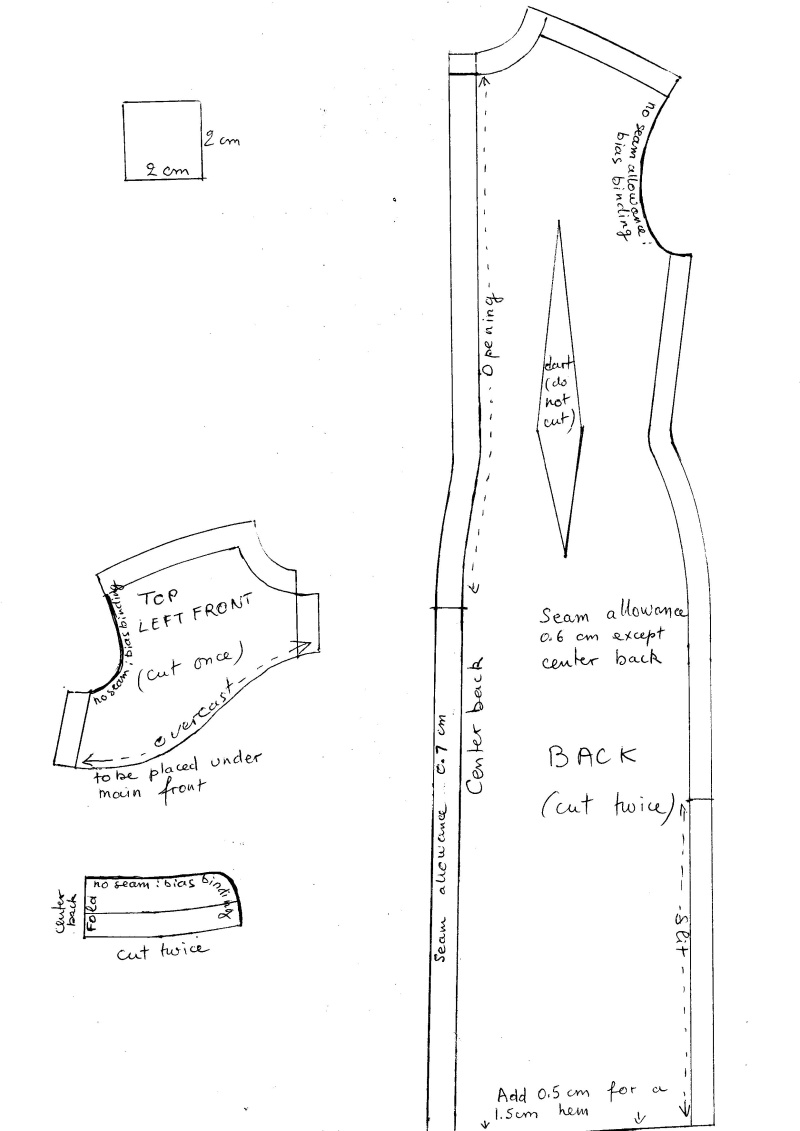 2 cm
2 cm
no seam allowance:
bias binding
Opening
dart
(do
not
cut)
no seam: bias binding
TOP
LEFT FRONT
(cut once)
overcast
to be placed under
main front
Seam allowance
0.6 cm except
center back
Center back
Seam allowance 0.7 cm
BACK
(cut twice)
slit
no seam: bias binding
center
back
Fold
cut twice
Add 0.5 cm for a
1.5cm hem